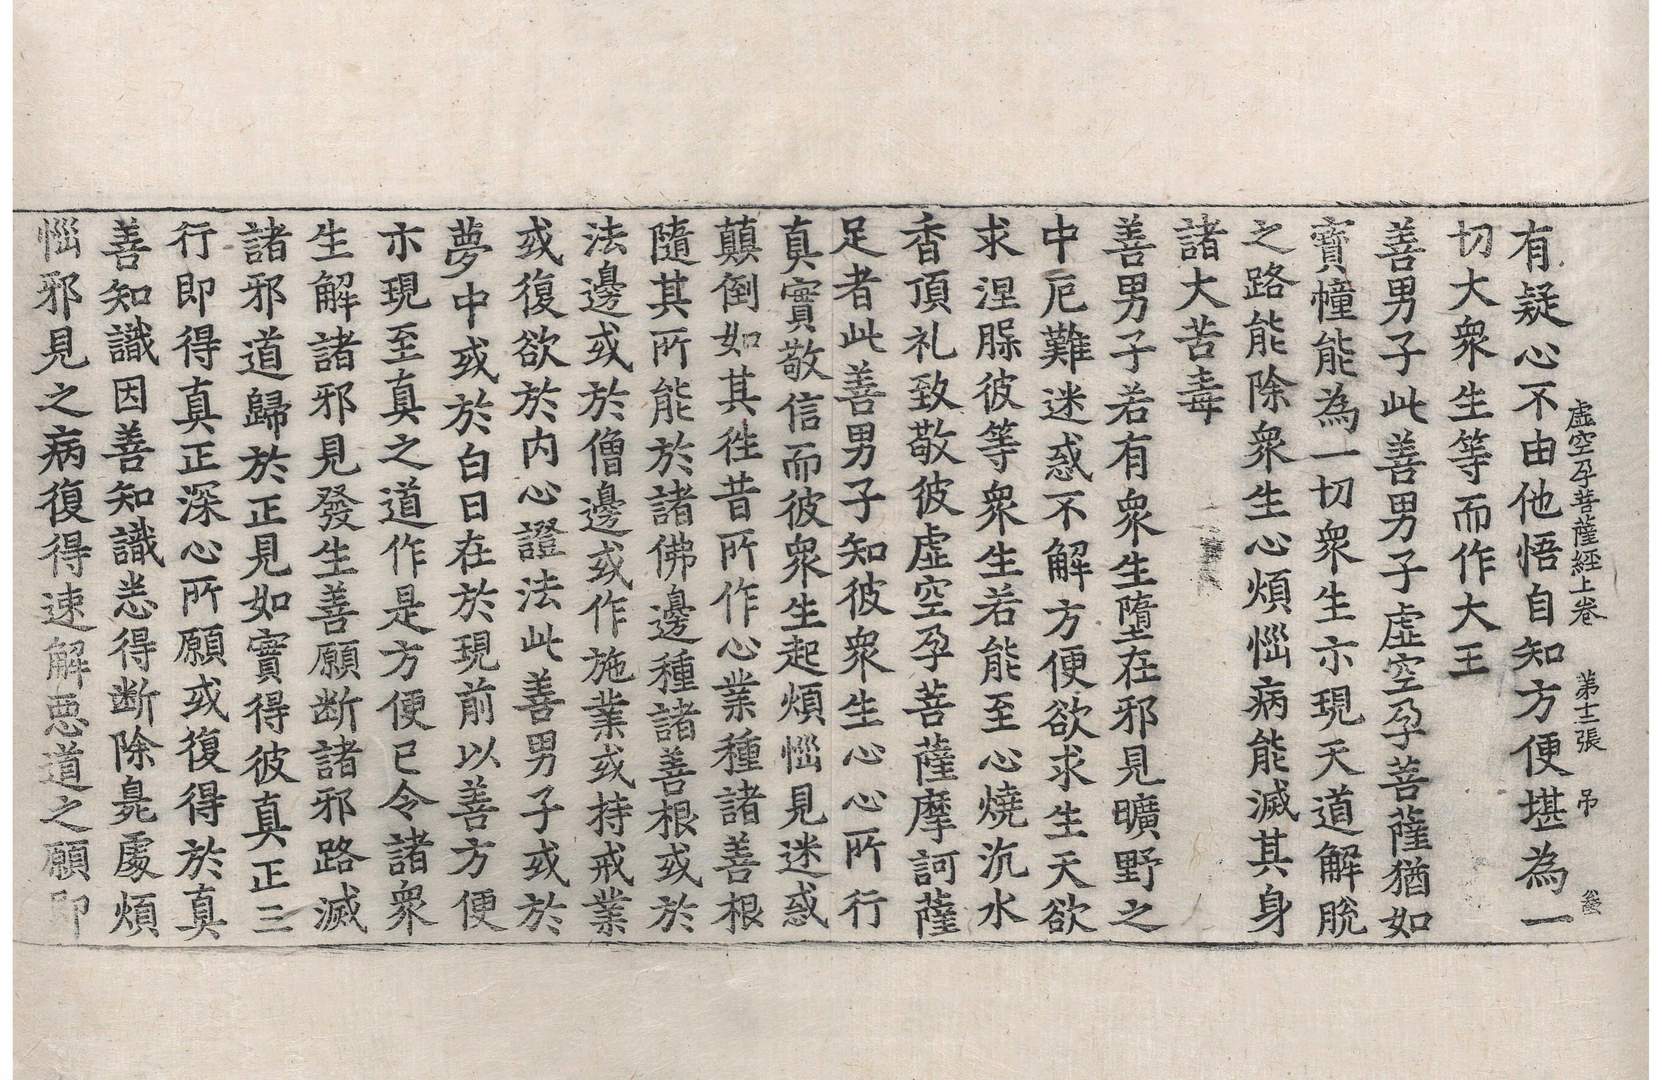 虛空孕菩薩經上卷　第十二張　吊
有疑心不由他悟自知方便堪為一
切大衆生等而作大王
善男子此善男子虛空孕菩薩猶如
寶幢能為一切衆生示現天道解脫
之路能除衆生心煩惱病能滅其身
諸大苦毒
善男子若有衆生墮在邪見曠野之
中厄難迷惑不解方便欲求生天欲
求涅槃彼等衆生若能至心燒沉水
香頂礼致敬彼虛空孕菩薩摩訶薩
足者此善男子知彼衆生心心所行
真實敬信而彼衆生起煩惱見迷惑
顛倒如其徃昔所作心業種諸善根
隨其所能於諸佛邊種諸善根或於
法邊或於僧邊或作施業或持戒業
或復欲於内心證法此善男子或於
夢中或於白日在於現前以善方便
示現至真之道作是方便已令諸衆
生解諸邪見發生善願斷諸邪路滅
諸邪道歸於正見如實得彼真正三
行即得真正深心所願或復得於真
善知識因善知識悉得断除臰處煩
惱邪見之病復得速解惡道之願即